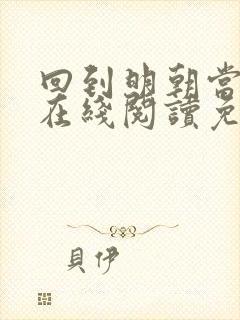 回到明朝当
在綫閱讀免
貝伊